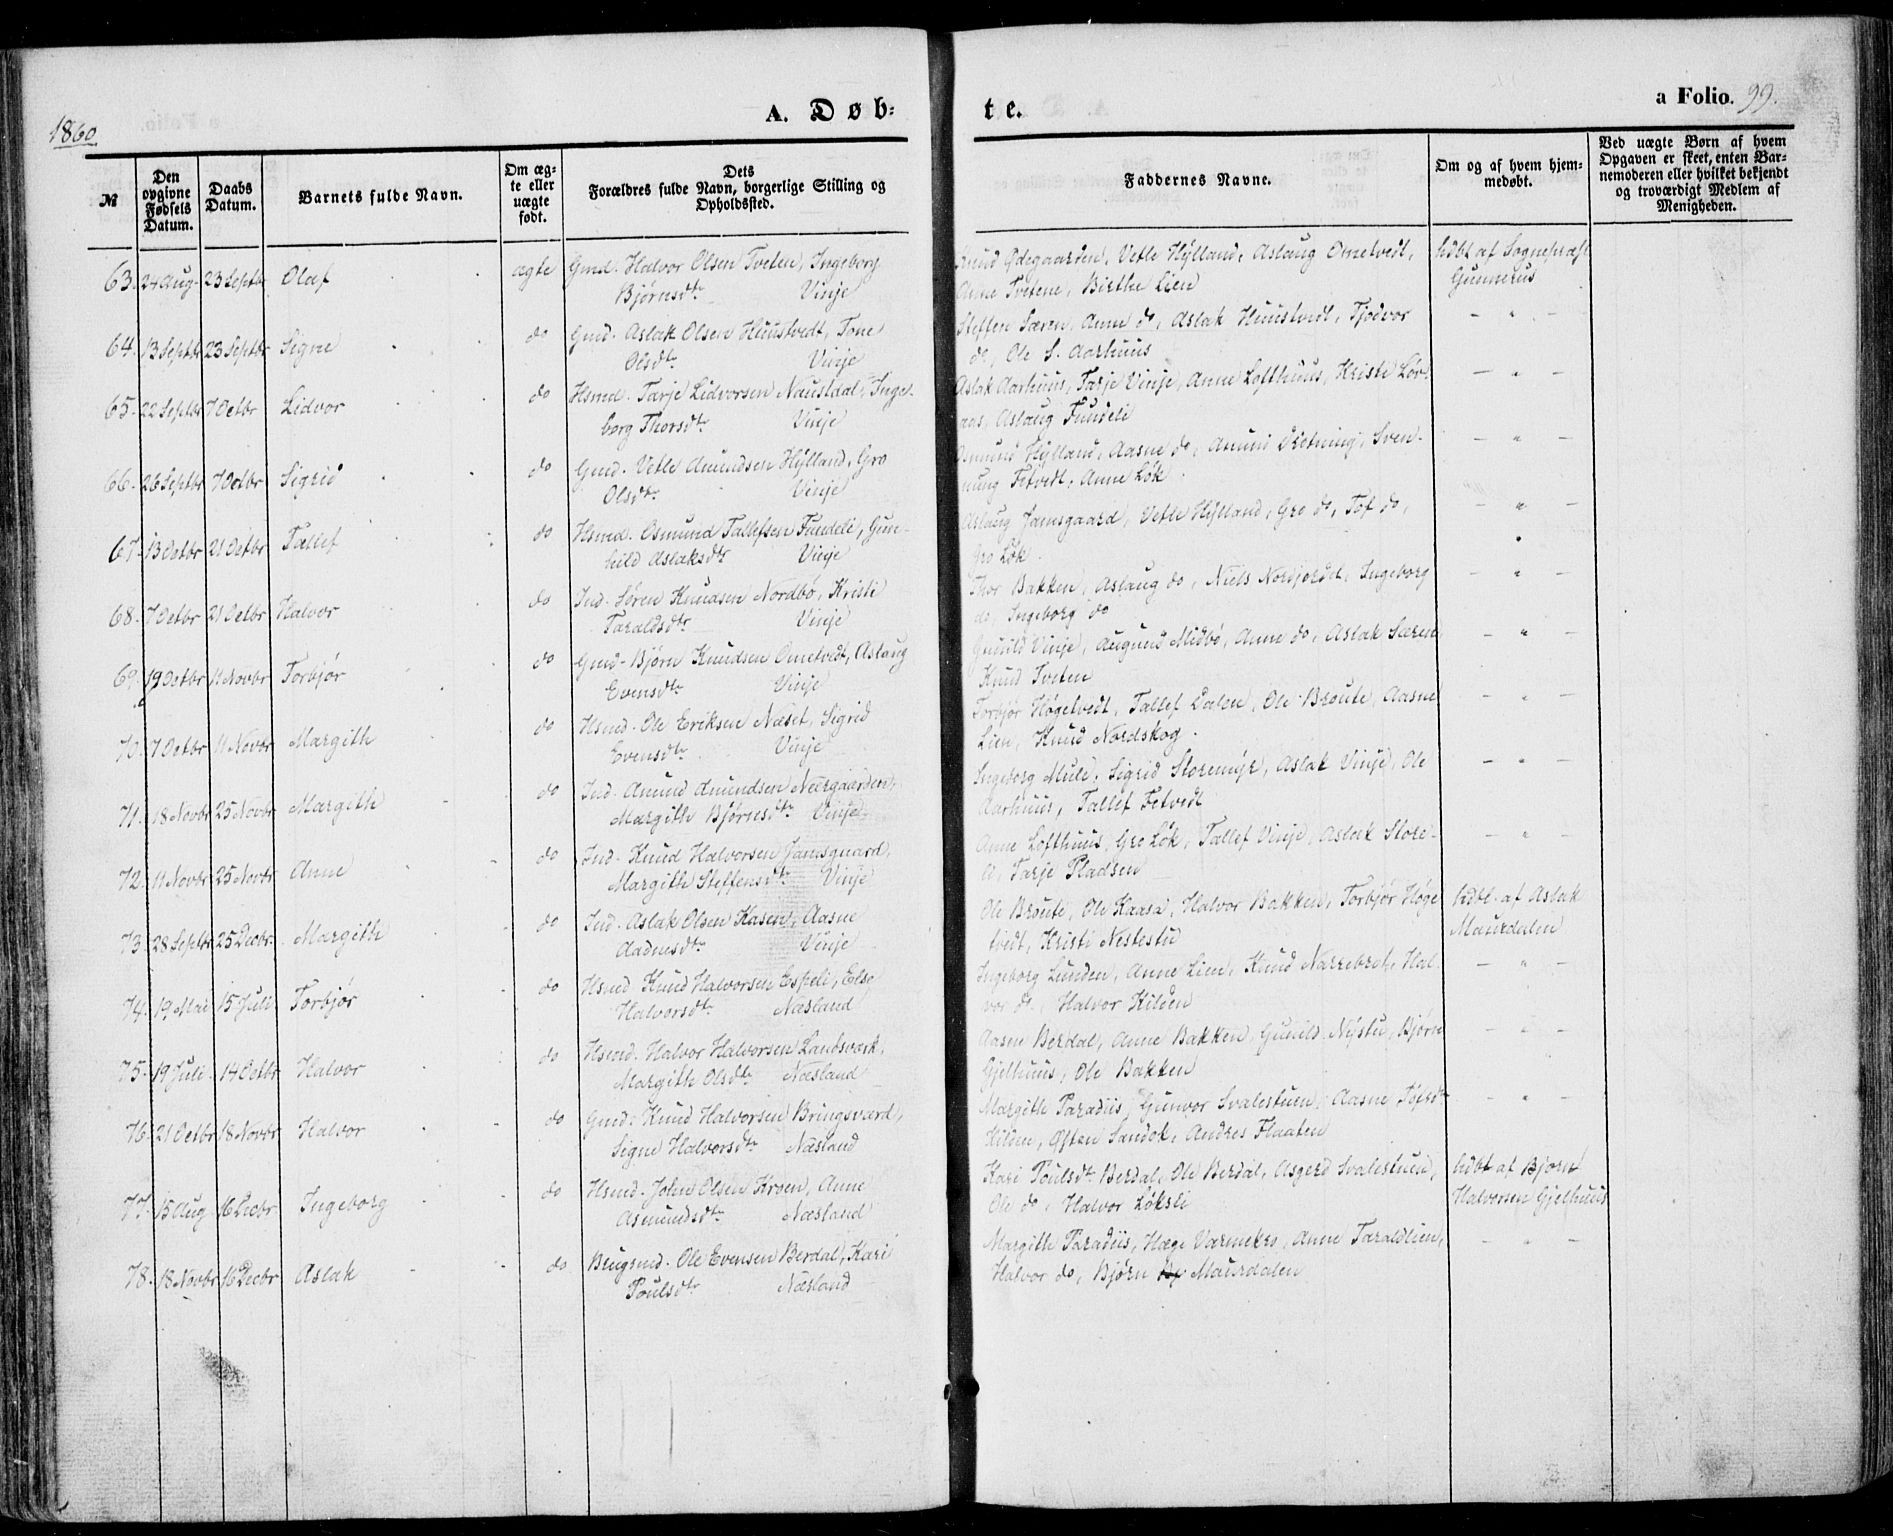 1860
A. Døb-
te.
a Folio. 99.
№
Den opgivne Fødsels Datum.
Daabs Datum.
Barnets fulde Navn.
Om ægte eller uægte født.
Dets Forældres fulde Navn, borgerlige Stilling og Opholdssted.
Faddernes Navne.
Om og af hvem hjemmedøbt.
Ved uægte Børn af hvem Opgaven er skeet, enten Barnemoderen eller hvilket bekjendt og troværdigt Medlem af Menigheden.
63. 24 Aug. 23 Septbr Olaf ægte Gmd. Halvor Olsen Tveten, Ingeborg
Bjørnsdtr Vinje
Knud Ødegaarden, Vetle Hylland, Aslaug Ometvedt,
Anne Tvetene, Birthe Lien
hdbt af Sognepræst
Gunnerus
64. 13 Septbr 23 Septbr Signe do Gmd. Aslak Olsen Huustvedt, Tone
Olsdtr Vinje
Steffen Særen, Anne do, Aslak Huustvedt, Tjodvor
do, Ole S. Aarhuus
— " —
65. 22 Septbr 7 Octbr Lidvor do Hsmd. Tarje Lidvorsen Naustdal, Inge-
borg Thorsdtr Vinje
Aslak Aarhuus, Tarje Vinje, Anne Lofthuus, Kristi Løv-
aas, Aslaug Fundeli
— " —
66. 26 Septbr 7 Octbr Sigrid do Gmd. Vetle Amundsen Hylland, Gro
Olsdtr Vinje
Osmund Hylland, Aasne do, Amund Sven-
nung Fetvedt, Anne Løk.
— " —
67. 13 Octbr 21 Octbr Tallef do Hsmd. Osmund Tallefsen Fundeli, Gun-
hild Aslaksdtr Vinje
Aslaug Jamsgaard, Vetle Hylland, Gro do, Tof do,
Gro Løk.
— " —
68. 7 Octbr 21 Octbr Halvor do Ind. Søren Knudsen Nordbø, Kristi
Taraldsdtr Vinje
Thor Bakken, Aslaug do, Niels Nordjordet, Ingeborg
do, Ingeborg do
— " —
69. 19 Octbr 11 Novbr Torbjør do Gmd. Bjørn Knudsen Ometvedt, Aslaug
Evensdtr Vinje
Gunild Vinje, Augund Midbø, Anne do, Aslak Særen,
Knud Tveten
— " —
70. 7 Octbr 11 Novbr Margith do Hsmd. Ole Eriksen Næset, Sigrid
Evensdtr Vinje
Torbjør Høgetvedt, Tallef Dalen, Ole Broute, Aasne
Lien, Knud Nordskog.
— " —
71. 18 Novbr 25 Novbr Margith do Ind. Amund Amundsen Neirgaarden,
Margith Bjørnsdtr Vinje
Ingeborg Mule, Sigrid Storemyr, Aslak Vinje, Ole
Aarhuus, Tallef Fetvedt
— " —
72. 11 Novbr 25 Novbr Anne do Ind. Knud Halvorsen Jamsgaard,
Margith Steffensdtr Vinje
Anne Lofthuus, Gro Løk, Tallef Vinje, Aslak Store-
li, Tarje Pladsen
— " —
73. 28 Septbr 25 Decbr. Margith do Ind. Aslak Olsen Kasen, Aasne
Aadnesdtr Vinje
Ole Broute, Ole Kaasa, Halvor Bakken, Torbjør Høge
tvedt, Kristi Nestestu
hdbt. af Aslak
Maurdalen
74. 19 Mai 15 Juli Torbjør do Hsmd. Knud Halvorsen Espeli, Else
Halvorsdtr Næsland
Ingeborg Lunden, Anne Lien, Knud Narrebret, Hal-
vor do, Halvor Kilden
— " —
75. 19 Juli 14 Octbr Halvor do Hsmd. Halvor Halvorsen Landsværk,
Margith Olsdtr Næsland
Aasen Berdal, Anne Bakken, Gunild Nystu, Bjørn
Gjelhuus, Ole Bakken
— " —
76. 21 Octbr 18 Novbr Halvor do Gmd. Knud Halvorsen Bringsværd,
Signe Halvorsdtr Næsland
Margith Paradiis, Gunvor Svalestuen, Aasne Tofsdtr
Kilden, Øften Sandok, Andres Flaaten
— " —
77. 15 Aug 16 Decbr Ingeborg do Hsmd. John Olsen Kroen, Anne
Asmundsdtr Næsland
Kari Poulsdtr Berdal, Ole Berdal, Asgerd Svalestuen,
Ole do, Halvor Løksli
hdbt af Bjørn
Halvorsen Gjelhuus
78. 18 Novbr 16 Decbr Aslak do Brugsmd. Ole Evensen Berdal, Kari
Poulsdtr Næsland
Margith Paradiis, Hæge Varmekro, Anne Taraldlien,
Halvor do, Bjørn Maurdalen
— " —